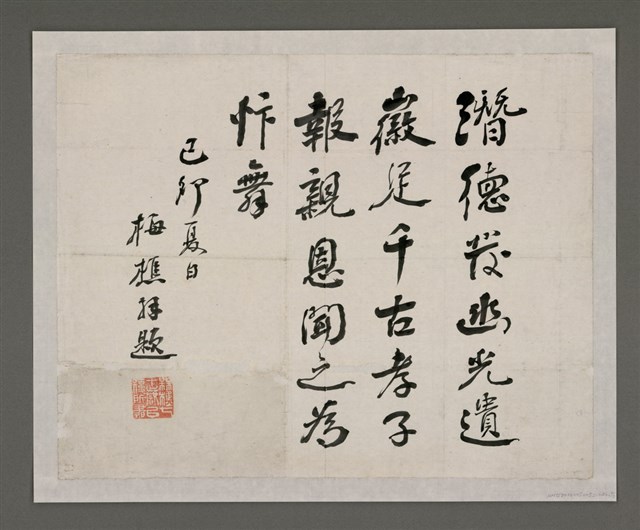 潛德發幽光遺
徽足千古孝子
報親恩聞之為
忭舞
己卯夏日
梅樵拜題